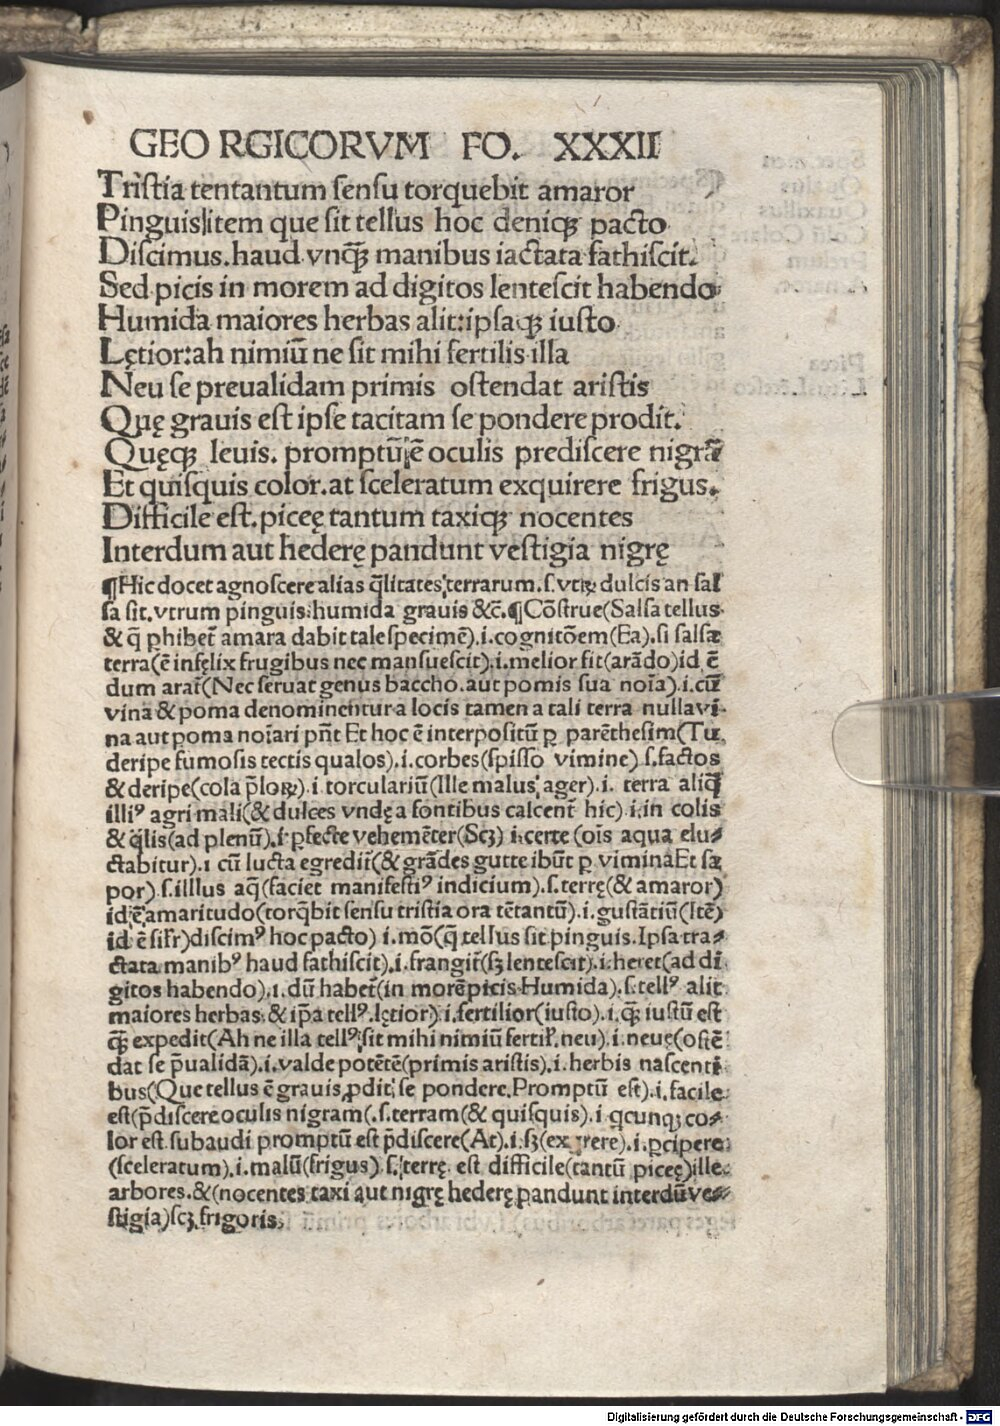 GEORGICORVM FO. XXXII
Tristia tentantum sensu torquebit amaror
Pinguis|item que sit tellus hoc deniqꝫ pacto
Discimus.haud vnq̃ꝫ manibus iactata fathiscit.
Sed picis in morem ad digitos lentescit habendo
Humida maiores herbas alit:ipsaqꝫ iusto
Lętior:ah nimiũ ne sit mihi fertilis illa
Neu se preualidam primis ostendat aristis
Quę grauis est ipse tacitam se pondere prodit.
Quęqꝫ leuis. promptũ ẽ oculis prediscere nigrã
Et quisquis color.at sceleratum exquirere frigus.
Difficile est.piceę tantum taxiqꝫ nocentes
Interdum aut hederę pandunt vestigia nigrę
¶Hic docet agnoscere alias q̃litates terrarum.s.vtꝝ dulcis an sal
sa sit.vtrum pinguis:humida grauis &c̃.¶Cõstrue(Salsa tellus
& q̃ ꝑhibet̃ amara dabit tale specimẽ).i.cognitõem(Ea).si salsæ
terra(ẽ infęlix frugibus nec mansuescit).i.melior fit(arãdo)id ẽ
dum arat̃(Nec seruat genus baccho.aut pomis sua noĩa).i.cũ
vina & poma denominentur a locis tamen a tali terra nulla vi-
na aut poma noĩari pñt Et hoc ẽ interpositũ ꝑ parẽthesim(Tu
deripe fumosis tectis qualos).i.corbes(spisso vimine) s.factos
& deripe(cola p̃loꝝ).i torculariũ(Ille malus ager).i. terra aliq̃
illiꝰ agri mali(& dulces vndę a fontibus calcent̃ hic).i.in colis
& q̃lis(ad plenũ).i.ꝑfecte vehemẽter(Scꝫ) i.certe(oĩs aqua elu-
ctabitur).i cũ lucta egredit̃(& grãdes gutte ibũt ꝑ vimina Et sa
por).s.illlus aq̃(faciet manifestiꝰ indicium).s.terrę(& amaror)
id ẽ amaritudo(torq̃bit sensu tristia ora tẽtantũ).i.gustãtiũ(Itẽ)
id ẽ sil'r)discimꝰ hoc pacto) i.mõ(q̃ tellus sit pinguis.Ipsa tra-
ctata manibꝰ haud fathiscit).i.frangit̃(sꝫ lentescit).i.heret(ad di
gitos habendo).i.dũ habet̃(in morẽ picis Humida).s.tellꝰ alit
maiores herbas:& ip̃a tellꝰ.lętior).i.fertilior(iusto).i.q̃ꝫ iustũ est
q̃ꝫ expedit(Ah ne illa tellꝰ sit mihi nimiũ fertil'.neu).i.neue(ostẽ
dat se p̃ualidã).i.valde potẽtẽ(primis aristis).i.herbis nascenti
bus(Que tellus ẽ grauis ꝓdit se pondere.Promptũ est).i.facile
est(p̃discere oculis nigram(.s.terram(& quisquis).i qcunqꝫ co-
lor est.subaudi promptũ est p̃discere(At).i.sꝫ(ex rere).i.ꝑcipere
(sceleratum).i.malũ(frigus).s.terrę est difficile(tantũ piceę)ille
arbores.&(nocentes taxi aut nigrę hederę pandunt interdũ ve-
stigia)scꝫ.frigoris.
Digitalisierung gefördert durch die Deutsche Forschungsgemeinschaft - DFG